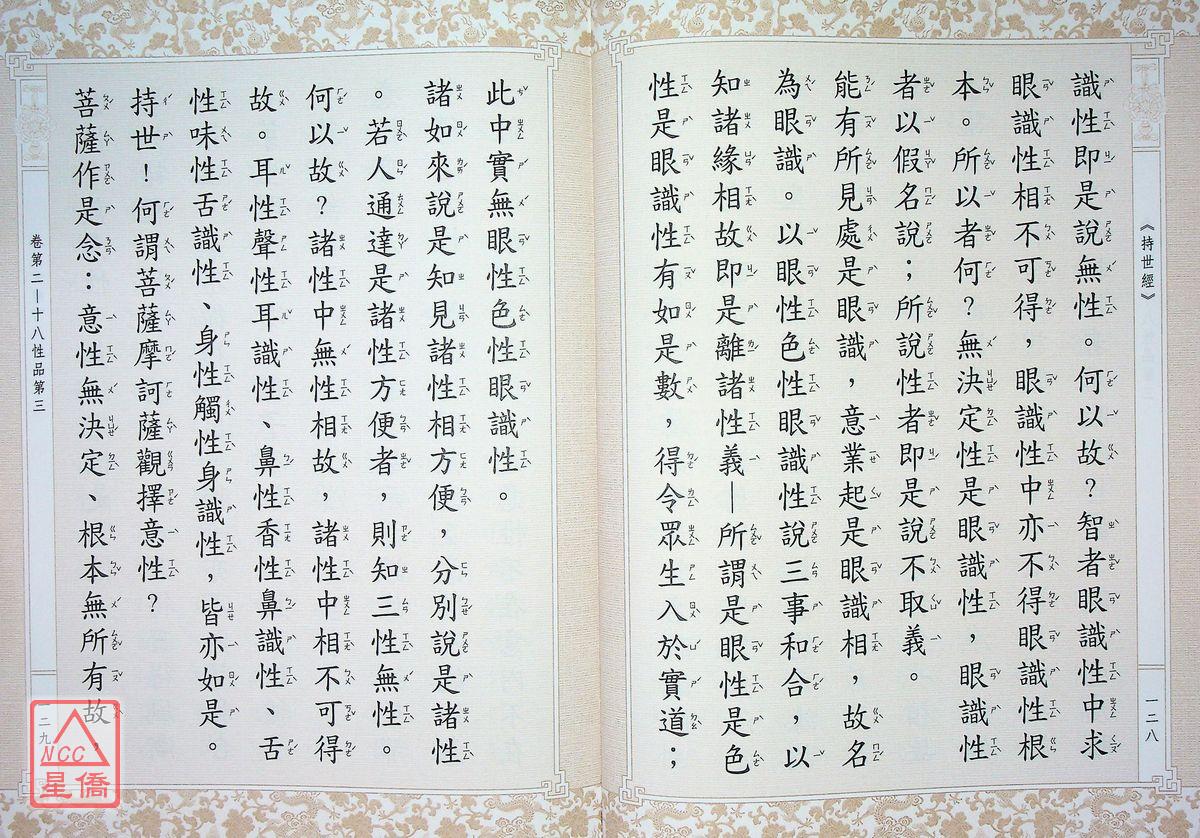 《持世經》
一二八
識性即是說無性。何以故？智者眼識性中求
眼識性相不可得，眼識性中亦不得眼識性根
本。所以者何？無決定性是眼識性，眼識性
者以假名說；所說性者即是說不取義。
能有所見處是眼識，意業起是眼識相，故名
為眼識。以眼性色性眼識性說三事和合，以
知諸緣相故即是離諸性義—所謂是眼性是色
性是眼識性有如是數，得令眾生入於實道；
此中實無眼性色性眼識性。
諸如來說是知見諸性相方便，分別說是諸性
。若人通達是諸性方便者，則知三性無性。
何以故？諸性中無性相故，諸性中相不可得
故。耳性聲性耳識性、鼻性香性鼻識性、舌
性味性舌識性、身性觸性身識性，皆亦如是。
持世！何謂菩薩摩訶薩觀擇意性？
菩薩作是念：意性無決定、根本無所有故，
卷第二—十八性品第三
一二九
NCC
星僑